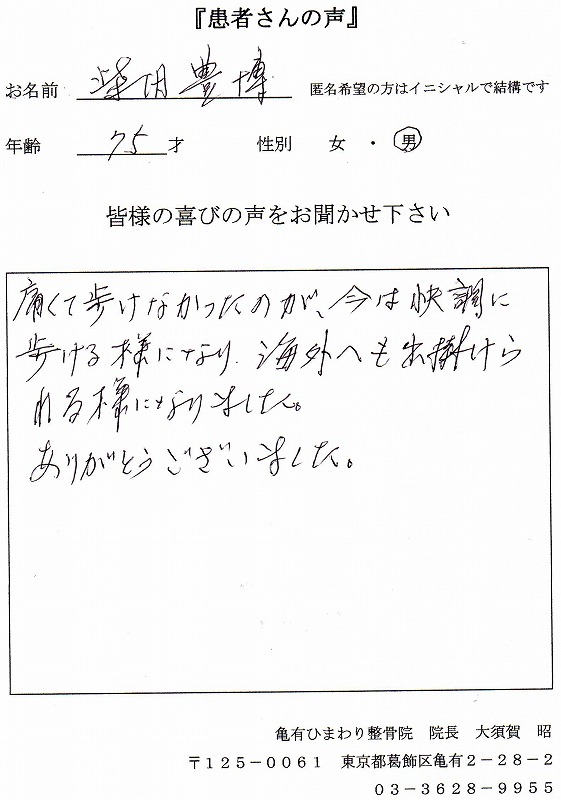 『患者さんの声』
お名前 柴田豊博 匿名希望の方はイニシャルで結構です
年齢 75 才 性別 女 ・ 男
皆様の喜びの声をお聞かせ下さい
痛くて歩けなかったのが、今は快調に
歩ける様になり、海外へも出掛けら
れる様になりました。
ありがとうございました。
亀有ひまわり整骨院 院長 大須賀 昭
〒125-0061 東京都葛飾区亀有2-28-2
03-3628-9955